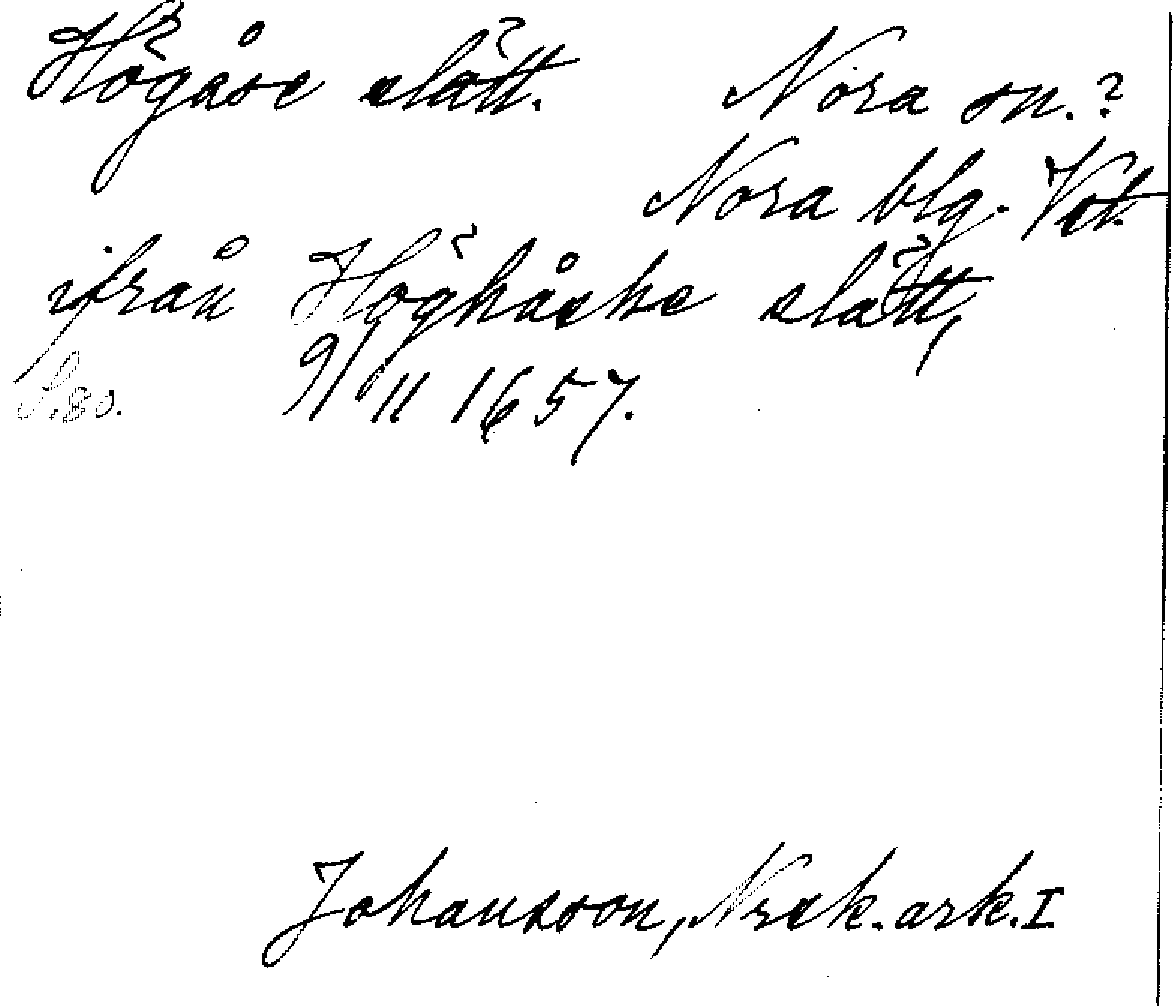 Högåse slått. Nora sn.?
Nora blg. Vstm.
ifrån Höghåshe slått,
S. 80. 9/11 1657.
Johansson, Nrsk. ark. I